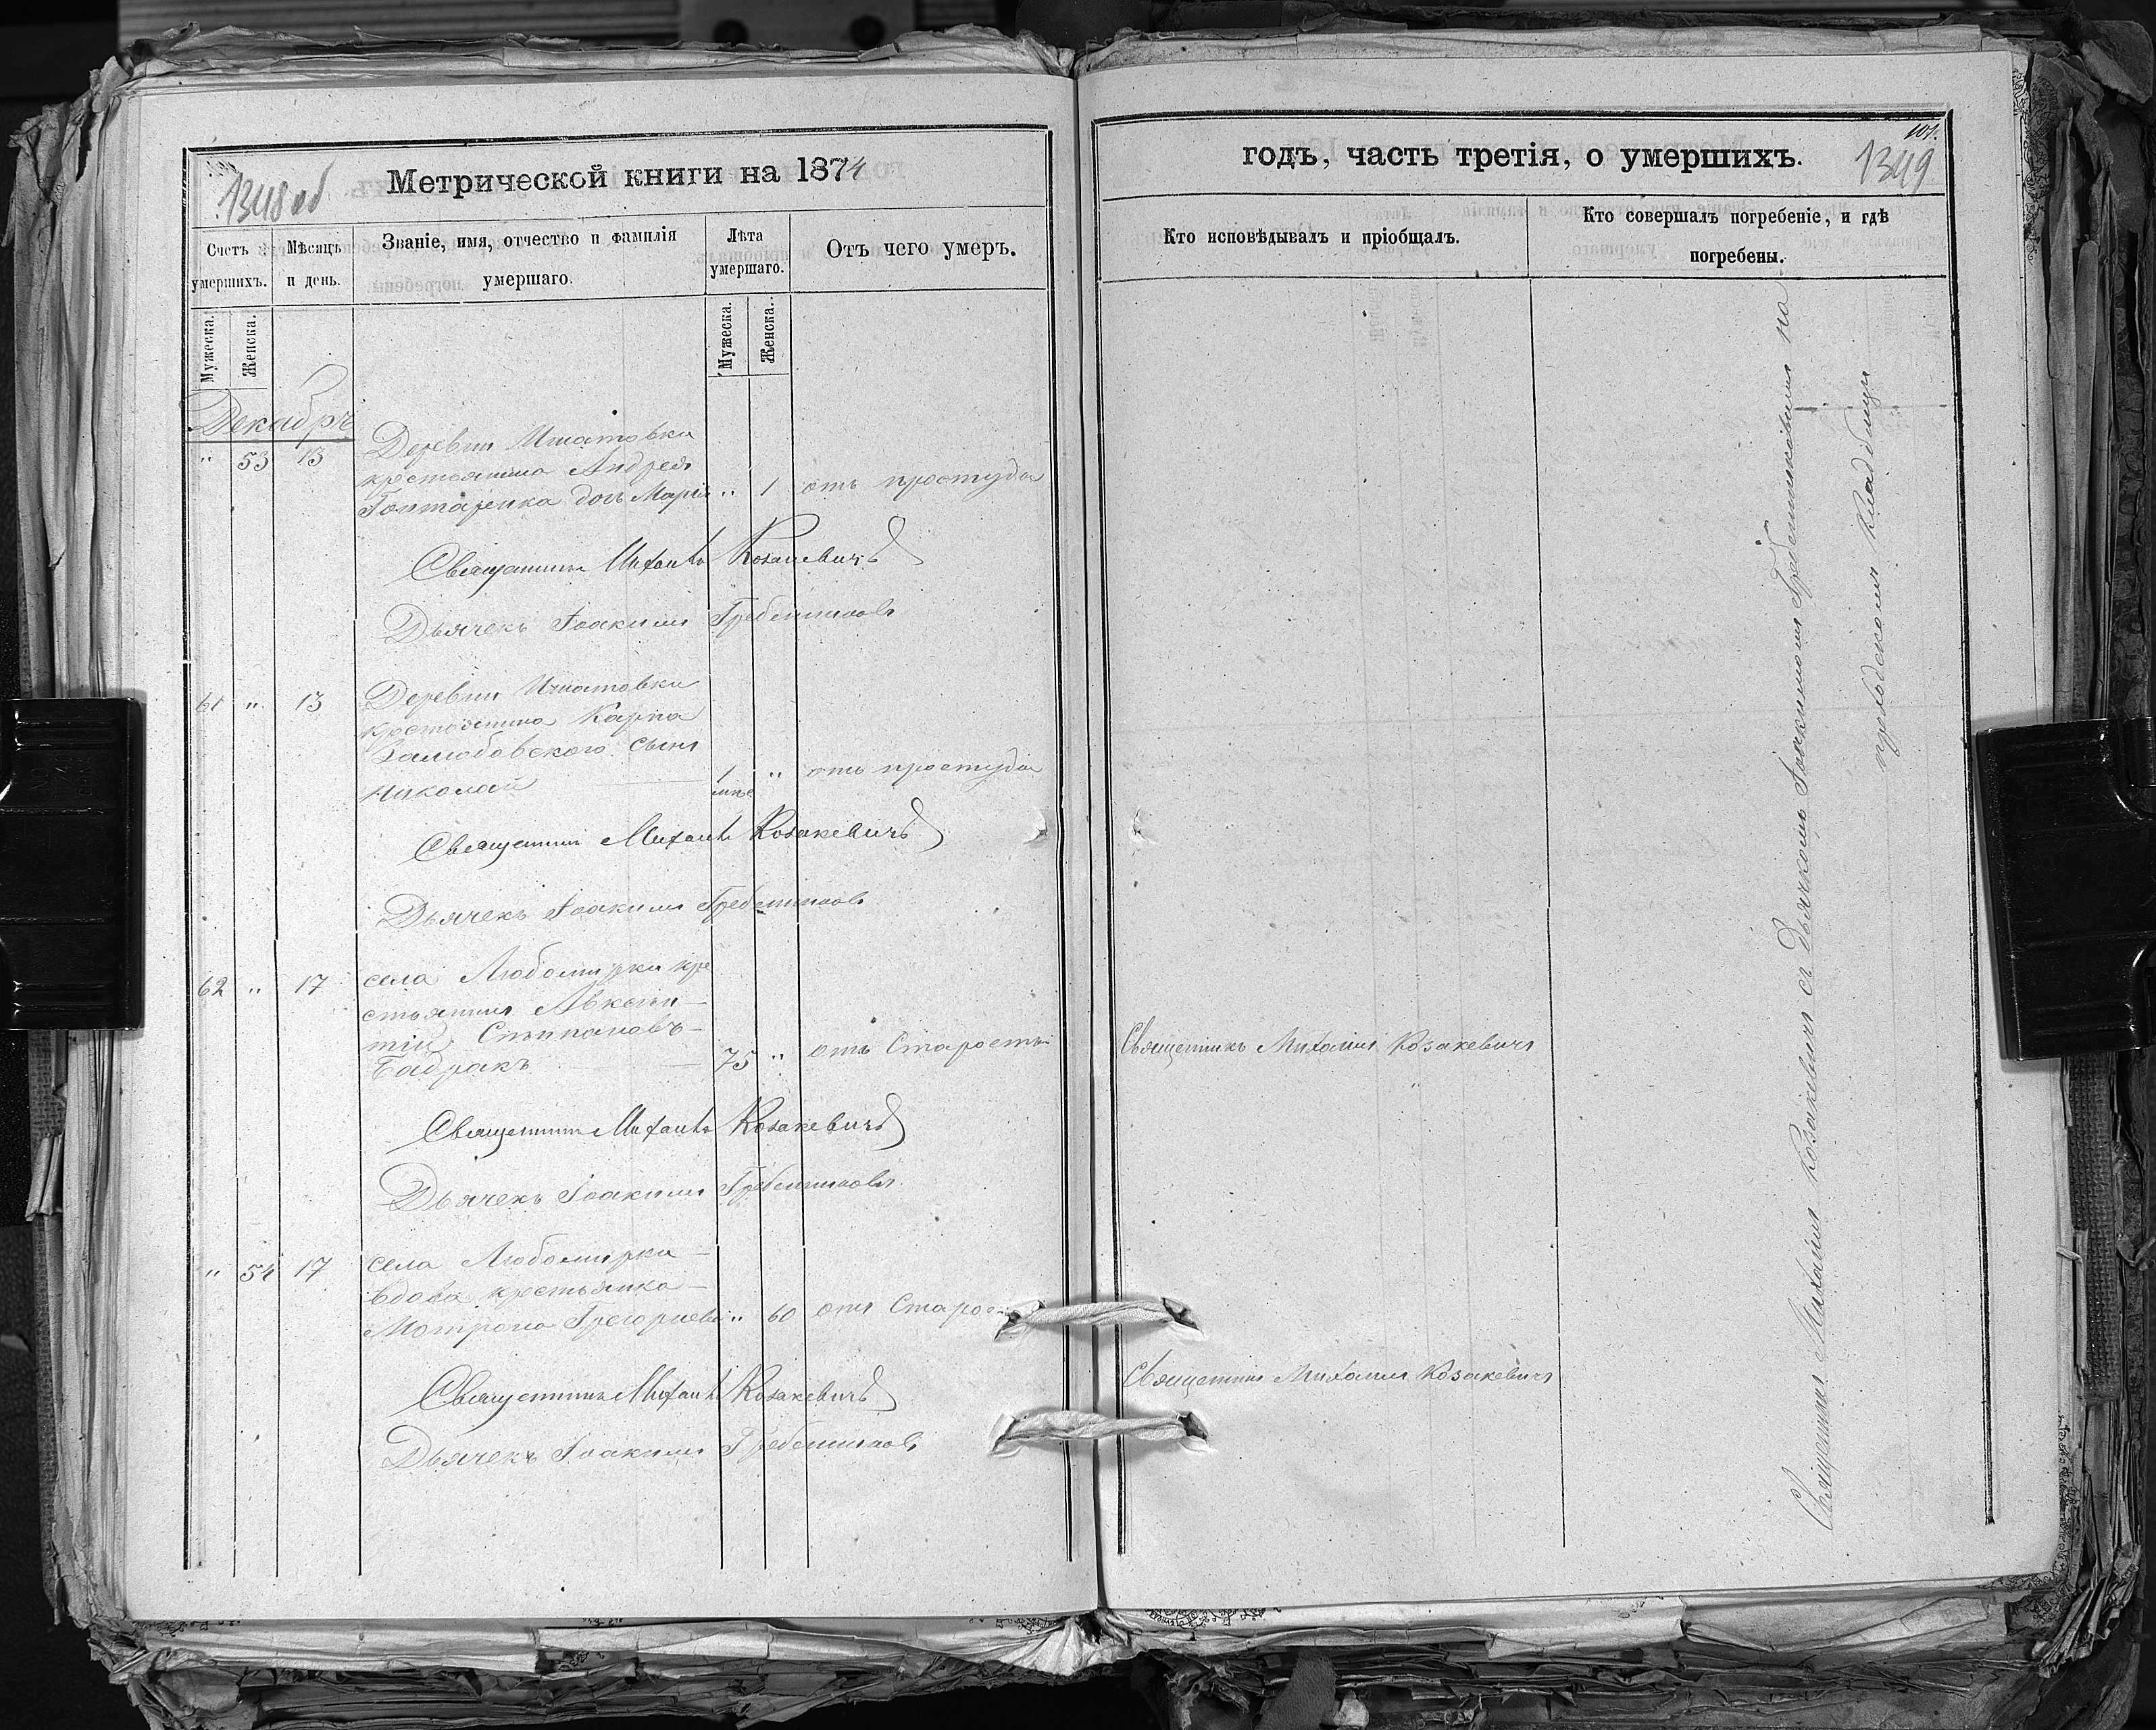 1348 об
Метрической книги на 1874
Счетъ умершихъ.
Мѣсяцъ и день.
Званіе, имя, отчество и фамилія умершаго.
Лѣта умершаго.
Отъ чего умеръ.
Мужеска.
Женска.
Мужеска.
Женска.
Декабрь
" 53 13
Деревни Игнатовки
крестьянина Андрея
Гонтаренка дочь Марія " 1 отъ простуды
Священникъ Михаилъ Козакевичъ
Дьячекъ Іоакимъ Гребенниковъ
61 " 13
Деревни Игнатовки
крестьянина Карпа
сынъ
Николай 1 " отъ простуды
Священникъ Михаилъ Козакевичъ
Дьячекъ Іоакимъ Гребенниковъ
62 " 17
села Любомирки кре
стьянинъ Авксен-
тій
Бабракъ 75 " отъ Старости
Священникъ Михаилъ Козакевичъ
Дьячекъ Іоакимъ Гребенниковъ
" 54 17
села Любомирки
вдова крестьянка
Мотрона Грегориева " 60 отъ Старос
Священникъ Михаилъ Козакевичъ
Дьячекъ Іоакимъ Гребенниковъ
101.
1349
годъ, часть третія, о умершихъ.
Кто исповѣдывалъ и пріобщалъ.
Кто совершалъ погребеніе, и гдѣ
погребены.
Священникъ Михаилъ Козакевичъ
Священникъ Михаилъ Козакевичъ
Священникъ Михаилъ Козакевичъ съ Дьячкомъ Іоакимомъ Гребенниковымъ на
приходскомъ Кладбищѣ